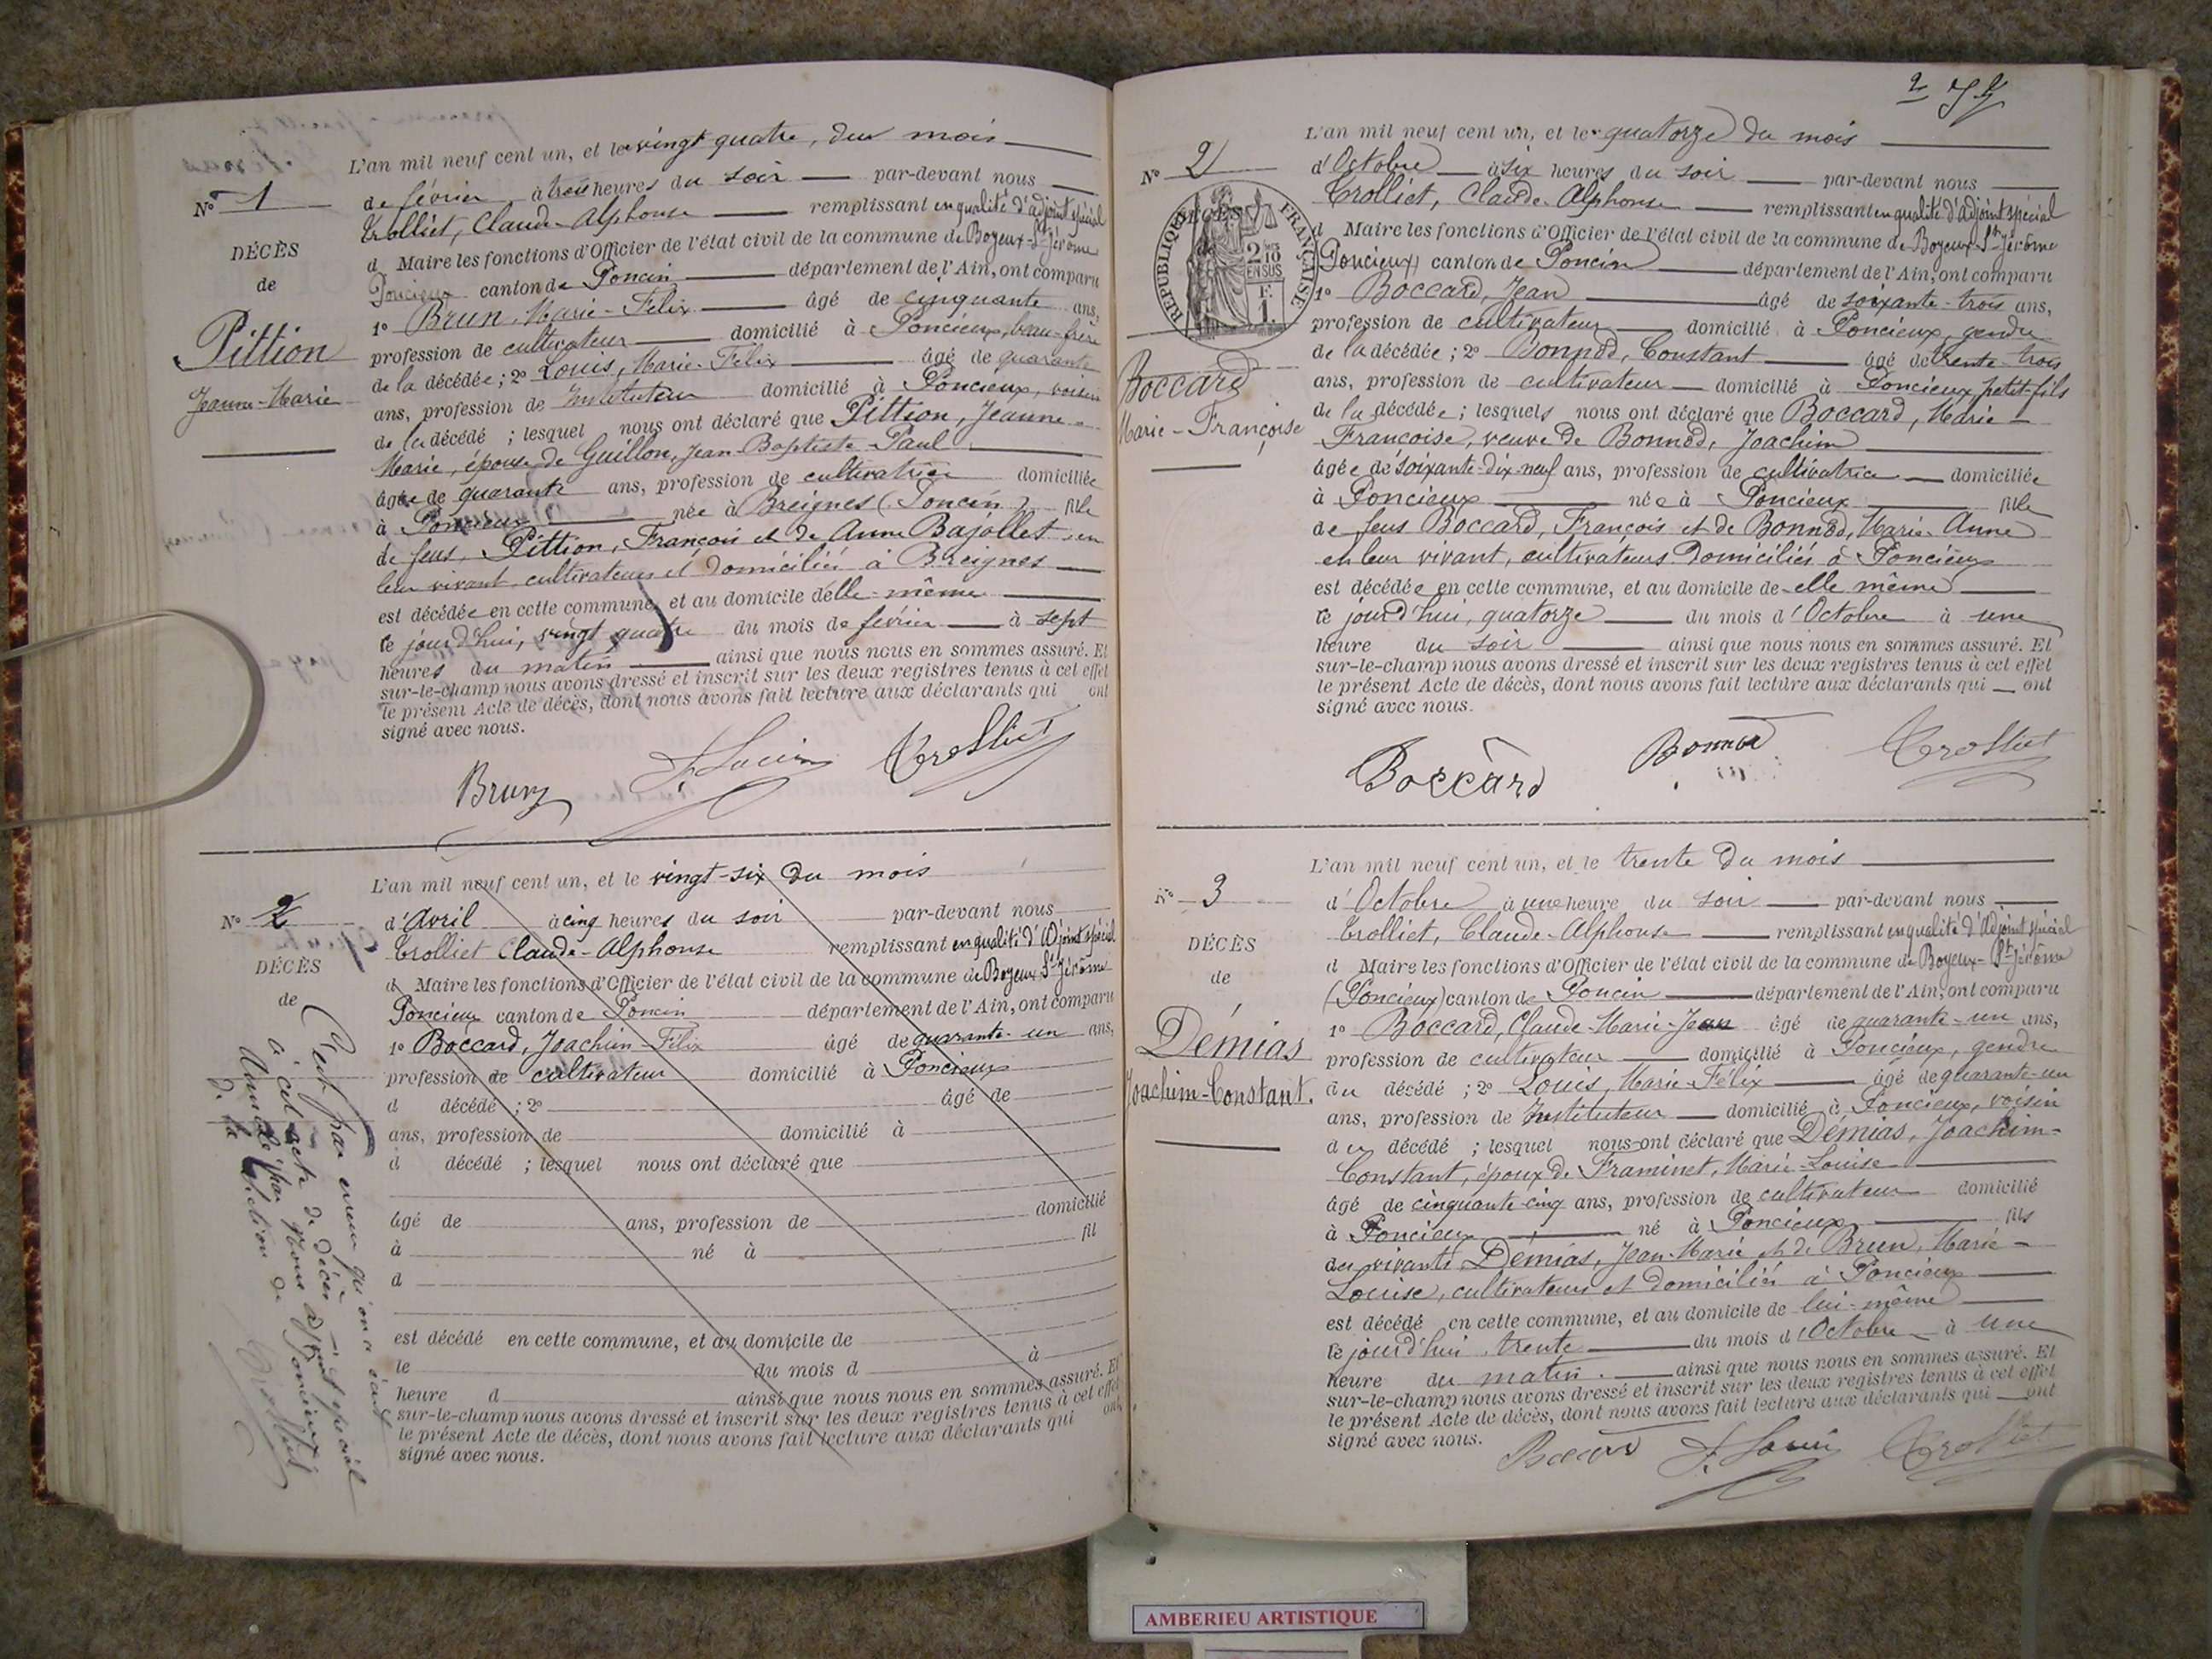 L'an mil neuf cent un, et le vingt quatre, du mois
N° 1
de février à trois heures du soir par-devant nous
Trolliet, Claude-Alphonse remplissant en qualité d'adjoint spécial
d Maire les fonctions d'Officier de l'état civil de la commune de Boyeux-St-Jérôme
DÉCÈS
de
Pittion
Jeanne-Marie
Poncieux canton de Poncin département de l'Ain, ont comparu
1° Brun, Marie-Félix âgé de cinquante ans,
profession de cultivateur domicilié à Poncieux, beau-frère
de la décédée ; 2° Louis, Marie-Félix âgé de quarante
ans, profession de Instituteur domicilié à Poncieux, voisin
de la décédé ; lesquel nous ont déclaré que Pittion, Jeanne-
Marie, épouse de Guillon, Jean-Baptiste-Paul
âgée de quarante ans, profession de cultivatrice domiciliée
à Poncieux née à Breignes (Poncin) fille
de feus, Pittion, François et de Anne Bajollet, en
leur vivant, cultivateurs et domiciliés à Breignes
est décédée en cette commune, et au domicile d'elle-même
le jourd'hui, vingt quatre du mois de février à sept
heures du matin ainsi que nous nous en sommes assuré. Et
sur-le-champ nous avons dressé et inscrit sur les deux registres tenus à cet effet
le présent Acte de décès, dont nous avons fait lecture aux déclarants qui ont
signé avec nous.
Brun F. Louis Trolliet
L'an mil neuf cent un, et le vingt-six du mois
N° 2
d'Avril à cinq heures du soir par-devant nous
Trolliet Claude-Alphonse remplissant en qualité d'Adjoint spécial
d Maire les fonctions d'Officier de l'état civil de la commune de Boyeux-St-Jérôme
DÉCÈS
de
Poncieux canton de Poncin département de l'Ain, ont comparu
1° Boccard, Joachim-Félix âgé de quarante-un ans,
profession de cultivateur domicilié à Poncieux
d décédé ; 2° âgé de
ans, profession de domicilié à
d décédé ; lesquel nous ont déclaré que
âgé de ans, profession de domicilié
à né à fil
d
est décédé en cette commune, et au domicile de
le du mois d à
heure d ainsi que nous nous en sommes assuré. Et
sur-le-champ nous avons dressé et inscrit sur les deux registres tenus à cet effet
le présent Acte de décès, dont nous avons fait lecture aux déclarants qui ont
signé avec nous.
C'est par erreur qu'on a écrit
à cet acte de décès
Annulé par nous adjoint spécial
de la section de Poncieux
Trolliet
2
L'an mil neuf cent un, et le quatorze du mois
N° 2
d'Octobre à six heures du soir par-devant nous
Trolliet, Claude-Alphonse remplissant en qualité d'adjoint spécial
d Maire les fonctions d'Officier de l'état civil de la commune de Boyeux-St-Jérôme
DÉCÈS
RÉPUBLIQUE FRANÇAISE
2/10 EN SUS
F.
1.
(Poncieux) canton de Poncin département de l'Ain, ont comparu
1° Boccard, Jean âgé de soixante-trois ans,
profession de cultivateur domicilié à Poncieux, gendre
de la décédée ; 2° Bonnod, Constant âgé de trente-trois
Boccard
Marie-Françoise
ans, profession de cultivateur domicilié à Poncieux, petit-fils
de la décédée ; lesquels nous ont déclaré que Boccard, Marie-
Françoise, veuve de Bonnod, Joachim
âgée de soixante-dix-neuf ans, profession de cultivatrice domiciliée
à Poncieux née à Poncieux fille
de feus Boccard, François et de Bonnod, Marie-Anne
en leur vivant, cultivateurs domiciliés à Poncieux
est décédée en cette commune, et au domicile de elle même
le jourd'hui, quatorze du mois d'Octobre à une
heure du soir ainsi que nous nous en sommes assuré. Et
sur-le-champ nous avons dressé et inscrit sur les deux registres tenus à cet effet
le présent Acte de décès, dont nous avons fait lecture aux déclarants qui ont
signé avec nous.
Boccard Bonnod Trolliet
L'an mil neuf cent un, et le trente du mois
N° 3
d'Octobre à une heure du soir par-devant nous
Trolliet, Claude-Alphonse remplissant en qualité d'Adjoint spécial
d Maire les fonctions d'Officier de l'état civil de la commune de Boyeux-St-Jérôme
DÉCÈS
de
Démias
Joachim-Constant.
(Poncieux) canton de Poncin département de l'Ain, ont comparu
1° Boccard, Claude-Marie-Jean âgé de quarante-un ans,
profession de cultivateur domicilié à Poncieux, gendre
du décédé ; 2° Louis, Marie-Félix âgé de quarante-un
ans, profession de Instituteur domicilié à Poncieux, voisin
du décédé ; lesquel nous ont déclaré que Démias, Joachim-
Constant, époux de Framinet, Marie-Louise
âgé de cinquante-cinq ans, profession de cultivateur domicilié
à Poncieux né à Poncieux fils
des vivants Démias, Jean-Marie et de Brun, Marie-
Louise, cultivateurs et domiciliés à Poncieux
est décédé en cette commune, et au domicile de lui-même
le jourd'hui, trente du mois d'Octobre à une
heure du matin. ainsi que nous nous en sommes assuré. Et
sur-le-champ nous avons dressé et inscrit sur les deux registres tenus à cet effet
le présent Acte de décès, dont nous avons fait lecture aux déclarants qui ont
signé avec nous.
Boccard F. Louis Trolliet
AMBERIEU ARTISTIQUE